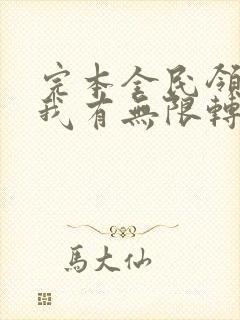 完本全民領
我有無限轉
馬大仙